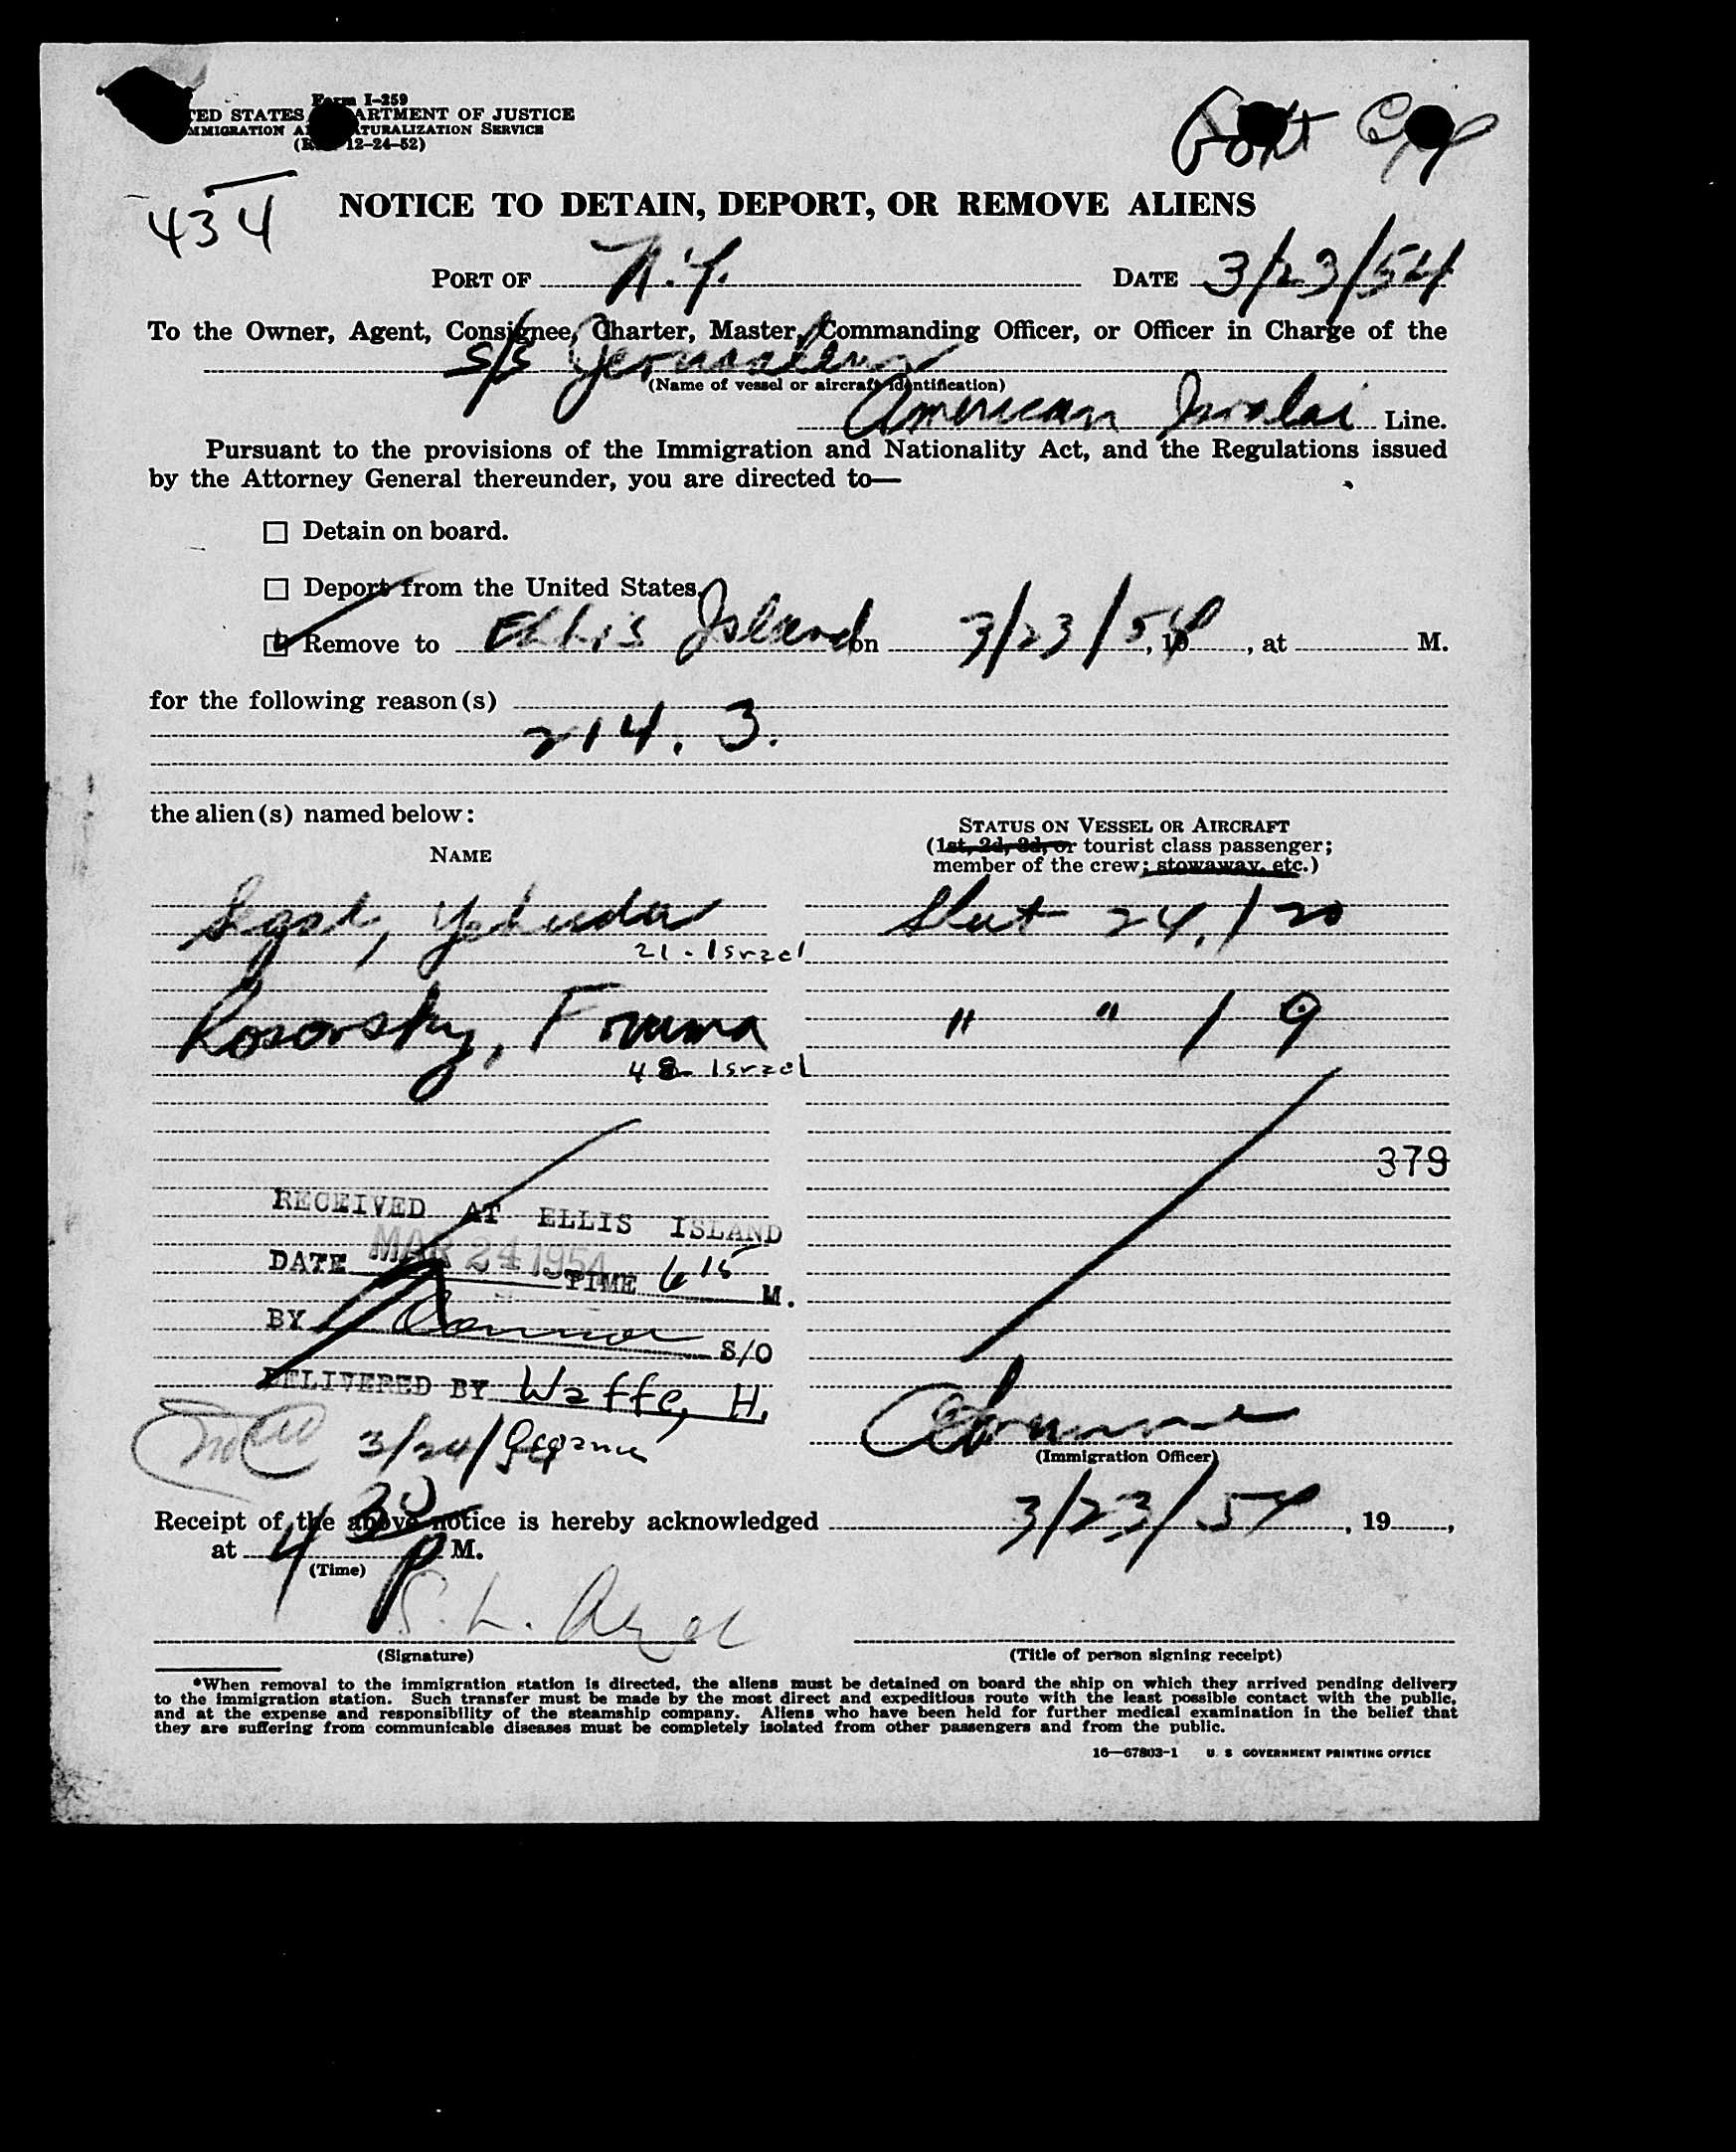 Form I-259
TED STATES ARTMENT OF JUSTICE
MMIGRATION A TURALIZATION SERVICE
(R 12-24-52)
434
NOTICE TO DETAIN, DEPORT, OR REMOVE ALIENS
PORT OF N.Y. DATE 3/23/54
To the Owner, Agent, Consignee, Charter, Master, Commanding Officer, or Officer in Charge of the
S/S Jerusalem
(Name of vessel or aircraft identification)
American Israeli Line.
Pursuant to the provisions of the Immigration and Nationality Act, and the Regulations issued
by the Attorney General thereunder, you are directed to—
Detain on board.
Deport from the United States.
Remove to Ellis Island on 3/23/54, 19, at M.
for the following reason(s)
214. 3.
the alien(s) named below:
STATUS ON VESSEL OR AIRCRAFT
(1st, 2d, 3d, or tourist class passenger;
NAME
member of the crew; stowaway, etc.)
Segal, Yehuda Sheet 24, / 20
21 - Israel
Rosovsky, Fruma " " / 9
48 Israel
379
RECEIVED AT ELLIS ISLAND
DATE MAR 24 1954 TIME 6 15 M.
BY S/O
DELIVERED BY Waffe, H.
3/24/
(Immigration Officer)
Receipt of the above notice is hereby acknowledged 3/23/54, 19,
at 4 30 P M.
(Time)
S. L.
(Signature) (Title of person signing receipt)
*When removal to the immigration station is directed, the aliens must be detained on board the ship on which they arrived pending delivery
to the immigration station. Such transfer must be made by the most direct and expeditious route with the least possible contact with the public,
and at the expense and responsibility of the steamship company. Aliens who have been held for further medical examination in the belief that
they are suffering from communicable diseases must be completely isolated from other passengers and from the public.
16—67803-1 U. S GOVERNMENT PRINTING OFFICE